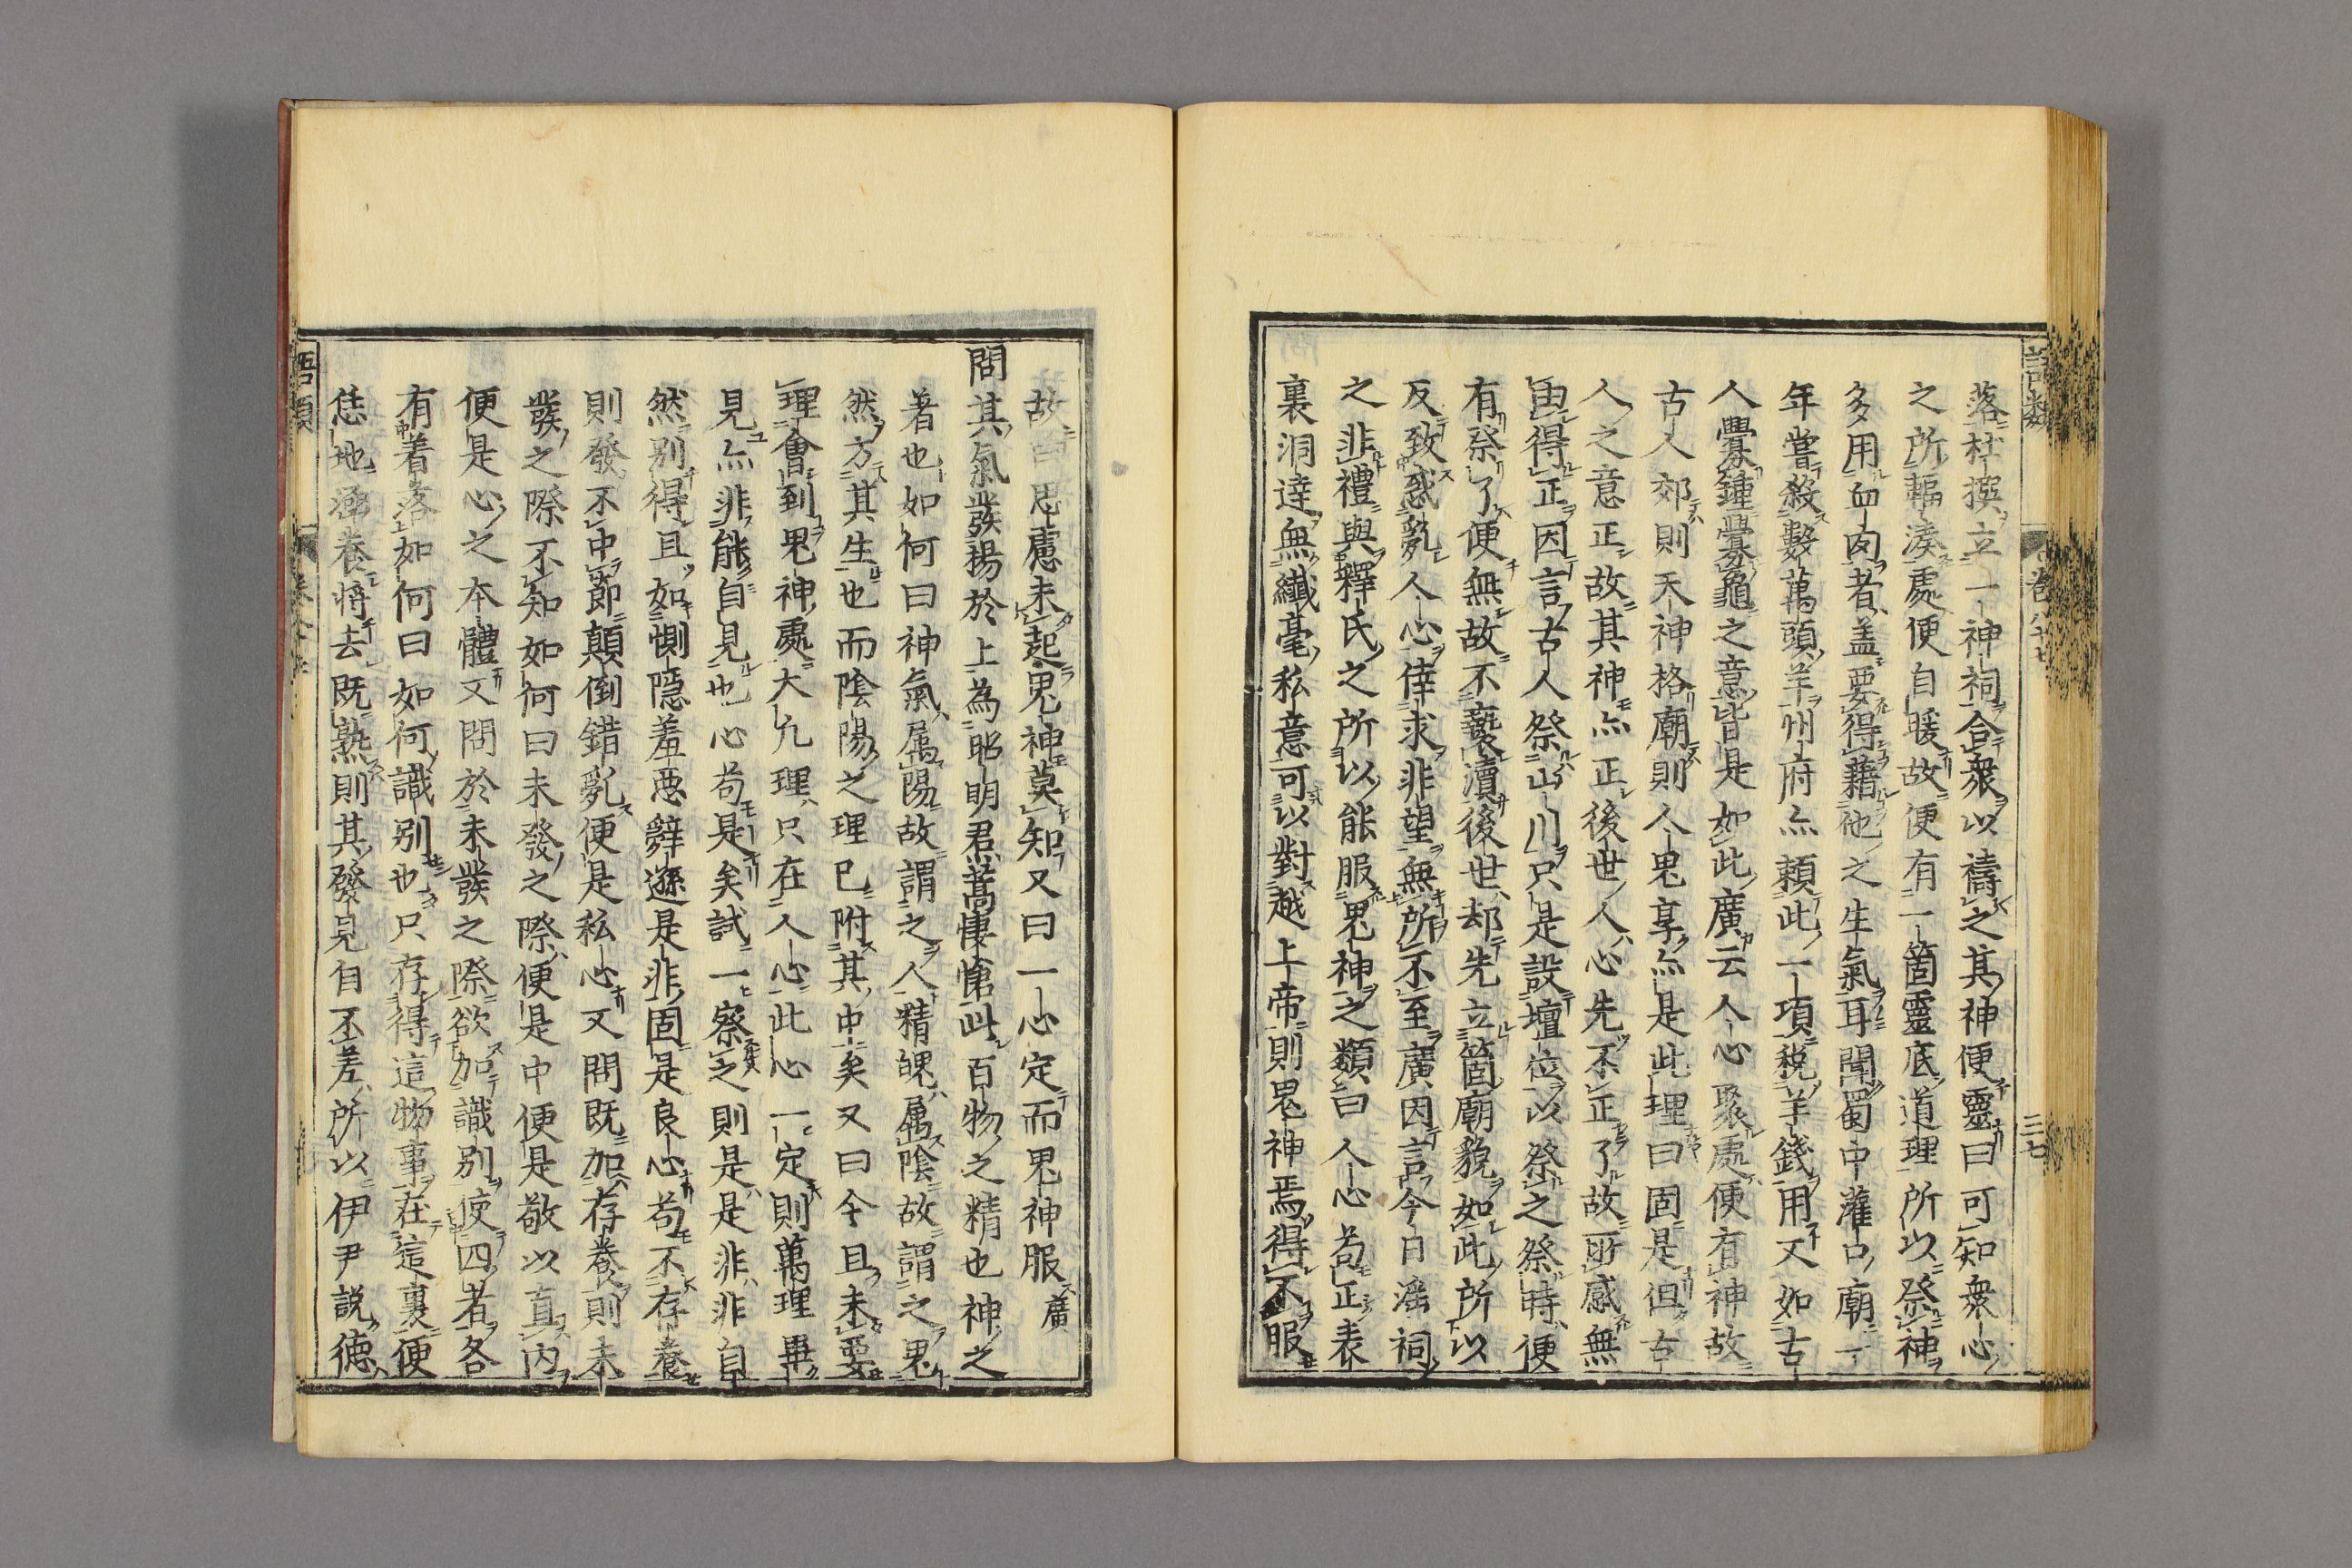 落杜撰立一神祠合衆以禱之其神便靈曰可知衆心
之所輻湊處便自暖故便有一箇靈底道理所以祭神
多用血肉者盖要得藉他之生氣耳聞蜀中灌口廟一
年嘗殺數萬頭羊州府亦頼此一項税羊錢用又如古
人釁鍾釁龜之意皆是如此廣云人心聚處便有神故
古人郊則天神格廟則人鬼享亦是此理曰固是但古
人之意正故其神亦正後世人心先不正了故所感無
由得正因言古人祭山川只是設壇位以祭之祭時便
有祭了便無故不褻瀆後世却先立箇廟貌如此所以
反致惑亂人心倖求非望無所不至廣因言今日滛祠
之非禮與釋氏之所以能服鬼神之類曰人心苟正表
裏洞達無纖毫私意可以對越上帝則鬼神焉得不服
故曰思慮未起鬼神莫知又曰一心定而鬼神服 廣
問其氣發揚於上為昭明君蒿悽愴此百物之精也神之
著也如何曰神氣属陽故謂之人精魄属陰故謂之鬼
然方其生也而陰陽之理已附其中矣又曰今且未要
理會到鬼神處大凡理只在人心此心一定則萬理畢
見亦非能自見也心苟是矣試一察之則是是非非自
然別得且如惻隱羞惡辭遜是非固是良心苟不存養
則發不中節顛倒錯亂便是私心又問既加存養則未
發之際不知如何曰未發之際便是中便是敬以直内
便是心之本體又問於未發之際欲加識別使四者各
有着落如何曰如何識別也只存得這物事在這裏便
恁地涵養將去既熟則其發見自不差所以伊尹説德
語類
卷八十七
三七